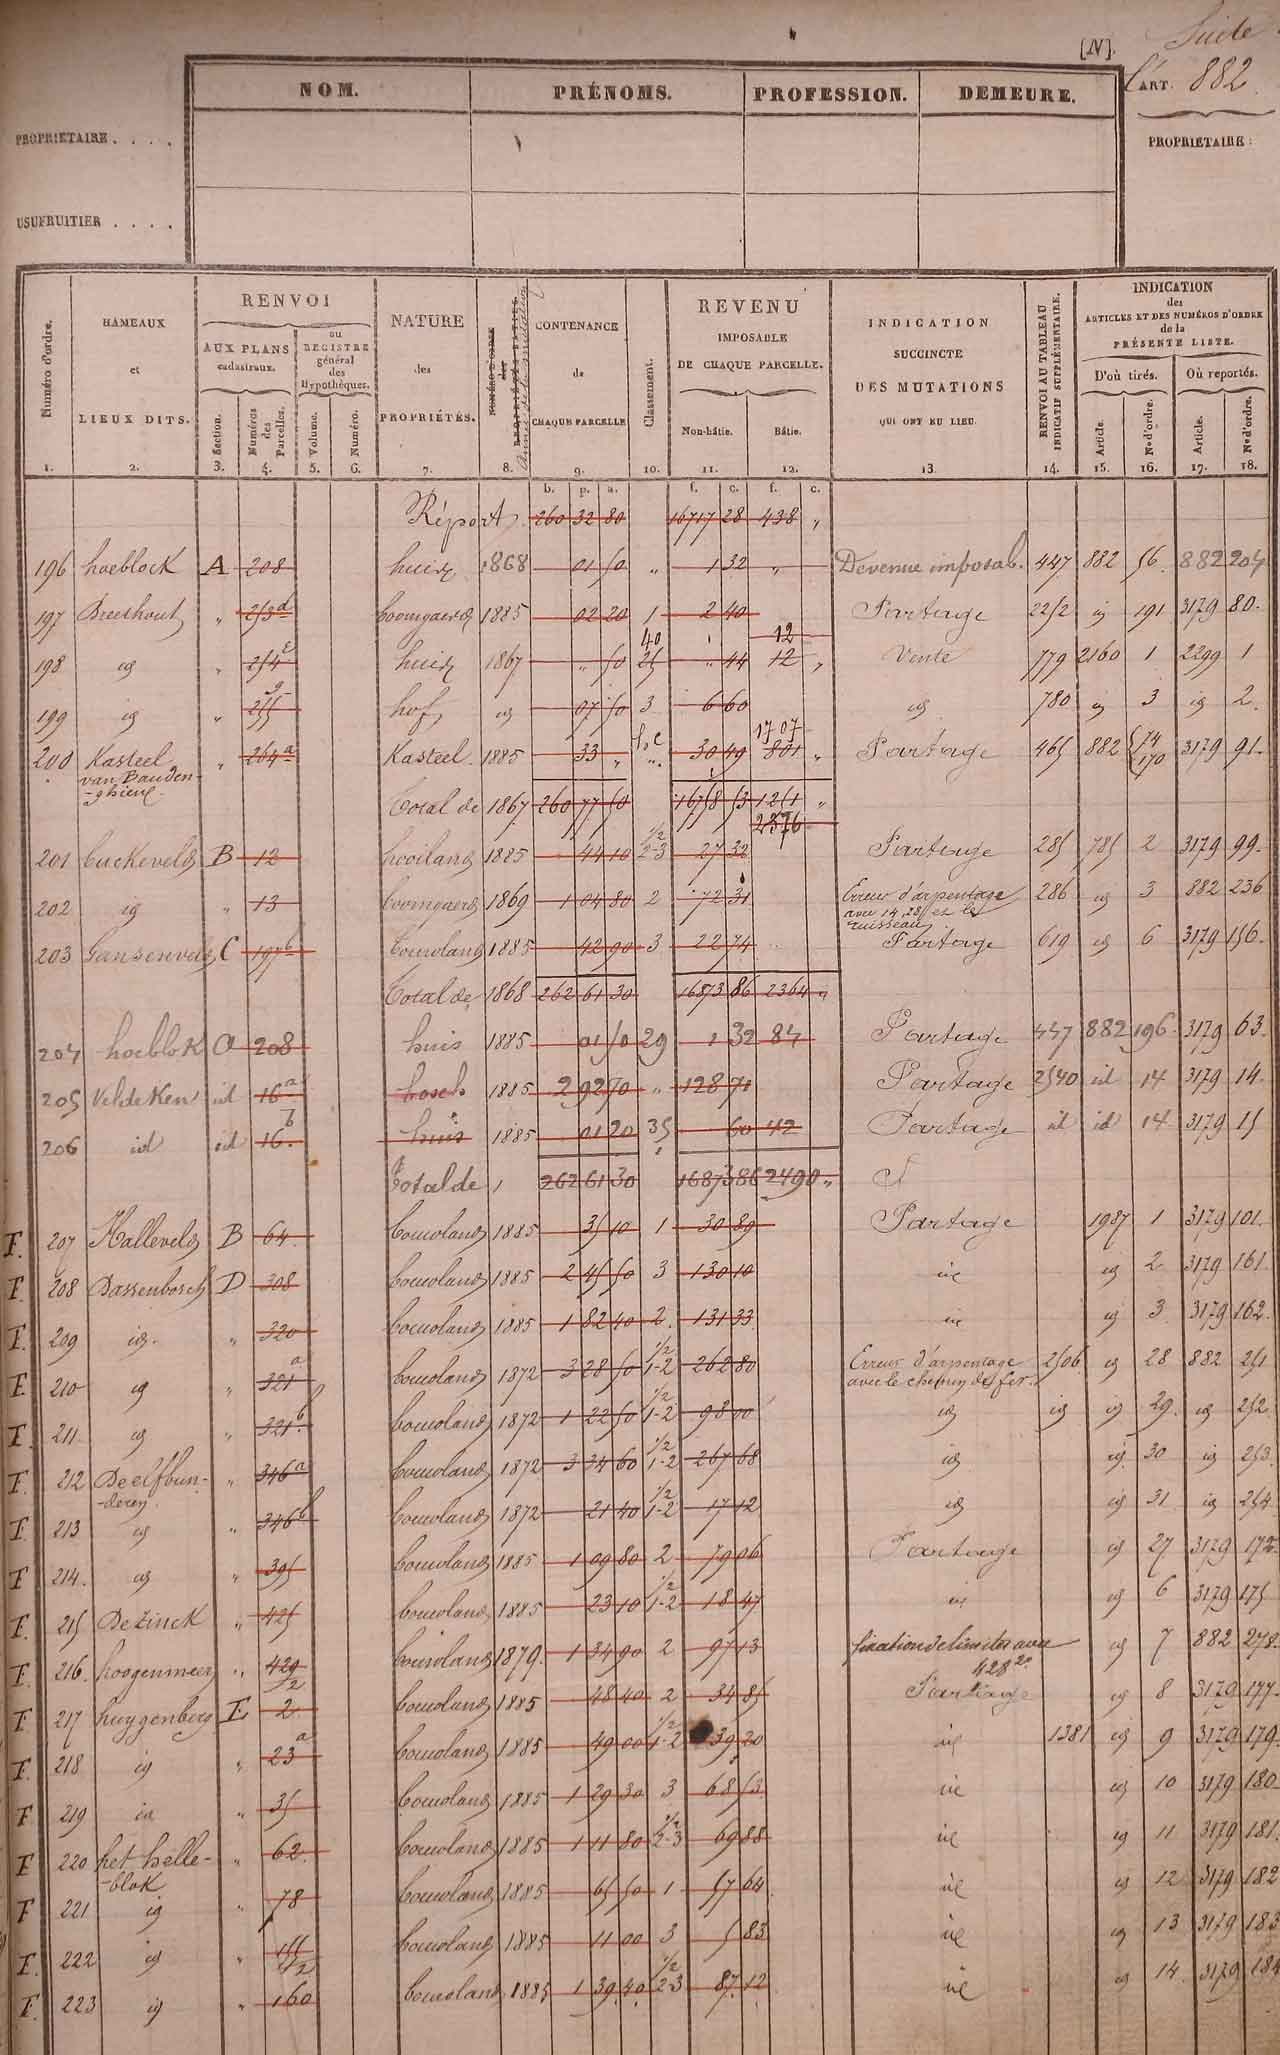 [N]. Suite
NOM. PRÉNOMS. PROFESSION. DEMEURE. l'ART. 882
PROPRIETAIRE . . . . PROPRIETAIRE :
USUFRUITIER . . . .
Numéro d'ordre. HAMEAUX et LIEUX DITS. RENVOI AUX PLANS cadastraux. Section. Numéros des Parcelles. ou REGISTRE général des Hypothèques. Volume. Numéro. NATURE des PROPRIÉTÉS. Année de la mutation CONTENANCE de CHAQUE PARCELLE Classement. REVENU IMPOSABLE DE CHAQUE PARCELLE. Non-bâtie. Bâtie. INDICATION SUCCINCTE DES MUTATIONS QUI ONT EU LIEU. RENVOI AU TABLEAU INDICATIF SUPPLÉMENTAIRE. INDICATION des ARTICLES ET DES NUMÉROS D'ORDRE de la PRÉSENTE LISTE. D'où tirés. Article. No d'ordre. Où reportés. Article. No d'ordre.
1. 2. 3. 4. 5. 6. 7. 8. 9. 10. 11. 12. 13. 14. 15. 16. 17. 18.
b. p. a. f. c. f. c.
Réport 260 32 80 16717 28 438 "
196 hoeblock A 208 huis 1868 01 50 " 1 32 " Devenue imposab. 447 882 56 882 204
197 Breethout " 253d boomgaerd 1885 02 20 1 2 40 Partage 2252 id 191 3179 80.
40 12
198 id " 254e huis 1867 " 50 25 " 44 12 " Vente 779 2160 1 2299 1
199 id " 255g hof id 07 50 3 6 60 id 780 id 3 id 2.
1707
200 Kasteel " 264a Kasteel 1885 33 " 30 49 801 " Partage 465 882 74 170 3179 91
van Bauden-
-ghien
Total de 1867 260 77 50 16758 53 1251 "
2376
201 Cuckeveld B 12 hooiland 1885 44 10 1/2 2-3 27 32 Partage 285 785 2 3179 99
202 id " 13 boomgaerd 1869 1 04 80 2 72 31 Erreur d'arpentage 286 id 3 882 236
avec 14, 28 et le
ruisseau
203 Gansenveld C 197b bouwland 1885 42 90 3 22 74 Partage 619 id 6 3179 156.
Total de 1868 262 61 30 16873 86 2364 "
204 hoeblok A 208 huis 1885 01 50 29 1 32 84 Partage 447 882 196 3179 63.
205 Veldeken id 16a bosch 1885 2 92 70 " 128 71 Partage 2540 id 14 3179 14.
206 id id 16b huis 1885 01 20 35 60 42 Partage id id 14 3179 15
Total de , 262 61 30 16873 86 2490 "
F. 207 Halleveld B 64 bouwland 1885 35 10 1 30 89 Partage 1987 1 3179 101.
F 208 Dassenbosch D 308 bouwland 1885 2 45 50 3 130 10 id id 2 3179 161.
F. 209 id " 320 bouwland 1885 1 82 40 2 131 33 id id 3 3179 162.
F 210 id " 321a bouwland 1872 3 28 50 1/2 1-2 262 80 Erreur d'arpentage 2506 id 28 882 251
avec le chemin de fer.
F. 211 id " 321b bouwland 1872 1 22 50 1/2 1-2 98 00 id id id 29 id 252
F. 212 Deelfbun- " 346a bouwland 1872 3 34 60 1/2 1-2 267 68 id id 30 id 253
-deren
F 213 id " 346b bouwland 1872 21 40 1/2 1-2 17 12 id id 31 id 254
F 214. id " 395 bouwland 1885 1 09 80 2 79 06 Partage id 27 3179 172
F. 215 Dezinck " 425 bouwland 1885 23 10 1/2 1-2 18 47 id id 6 3179 175
F. 216. hoogenmeer " 429/2 bouwland 1879. 1 34 90 2 97 13 fixation de limites avec id 7 882 278.
428 2o
F 217 huygenberg E 2 bouwland 1885 48 40 2 34 85 Partage id 8 3179 177.
F. 218 id " 23a bouwland 1885 49 00 1/2 1-2 39 20 id 1381 id 9 3179 179.
F 219 id " 35 bouwland 1885 1 29 30 3 68 53 id id 10 3179 180
F 220 het helle- " 62 bouwland 1885 1 11 80 1/2 2-3 69 88 id id 11 3179 181.
-blok
F 221 id " 78 bouwland 1885 65 50 1 57 64 id id 12 3179 182
F. 222 id " 155/2 bouwland 1885 11 00 3 5 83 id id 13 3179 183
F. 223 id " 160 bouwland 1885 1 39 40 1/2 2-3 87 12 id id 14 3179 184